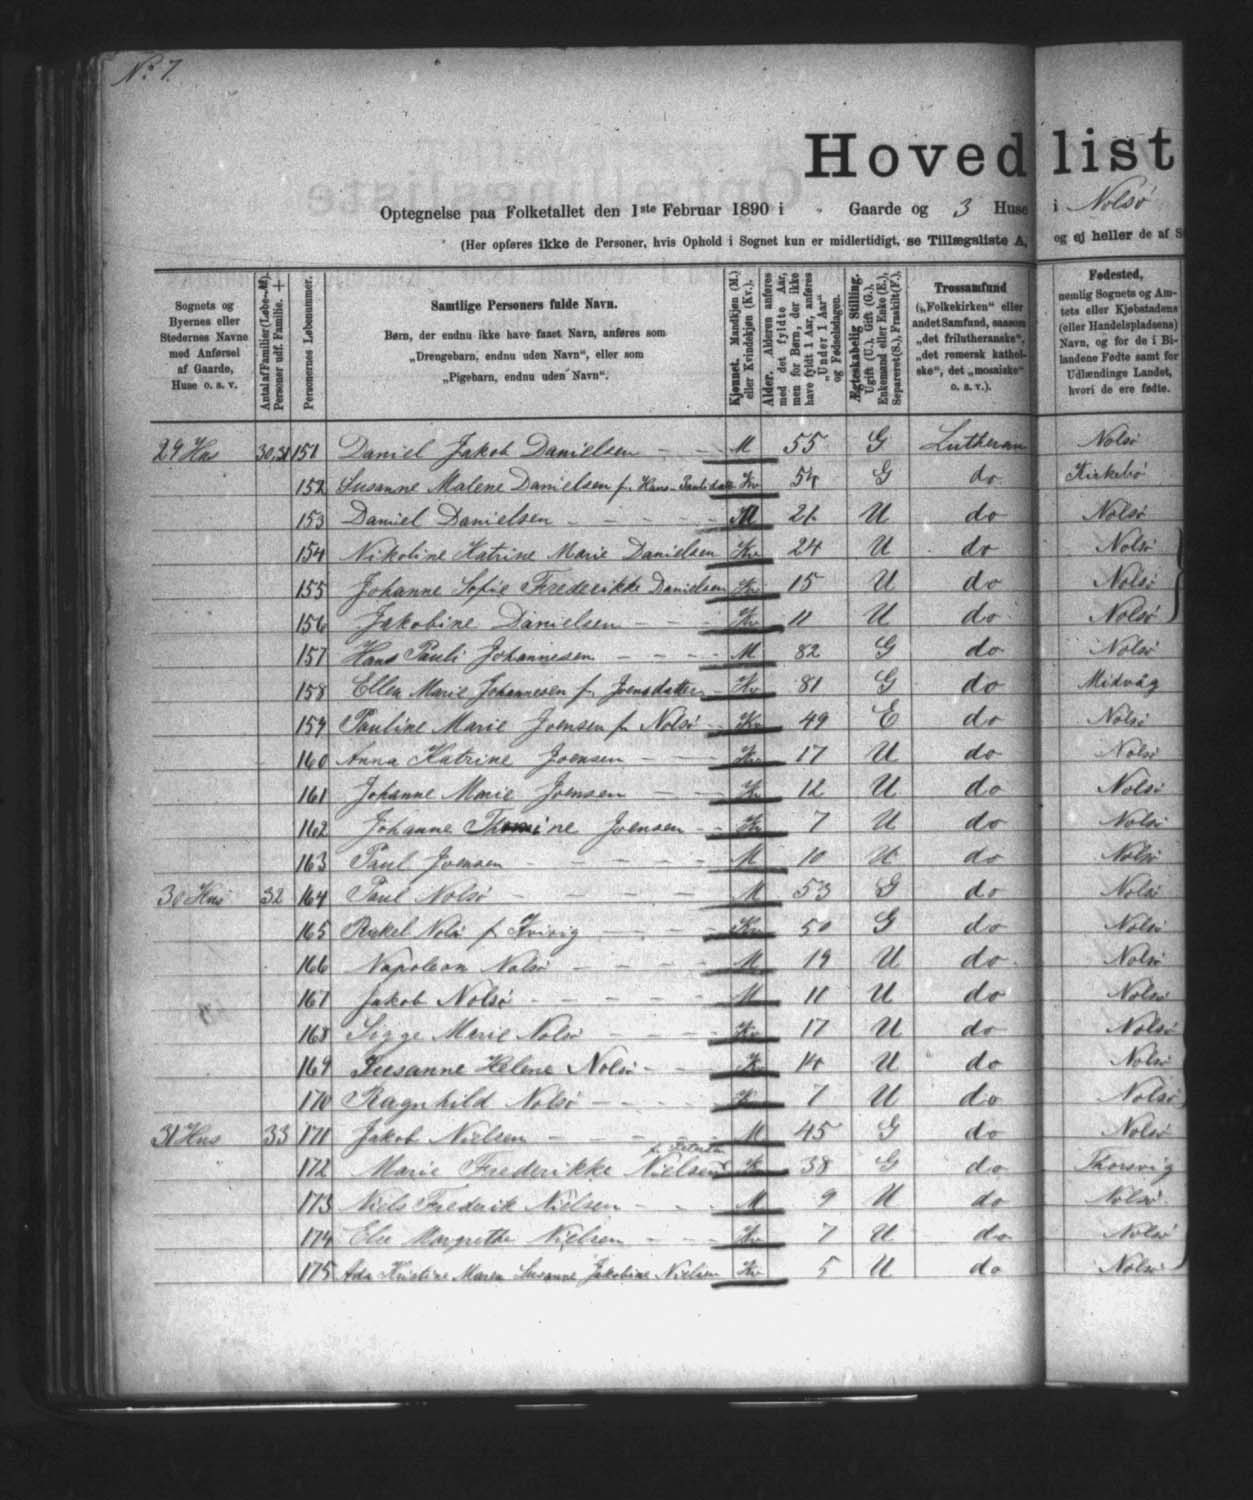 No 7.
Hovedlist
Optegnelse paa Folketallet den 1ste Februar 1890 i „ Gaarde og 3 Huse i Nolsø
(Her opføres ikke de Personer, hvis Ophold i Sognet kun er midlertidigt, se Tillægsliste A, og ej heller de af S
Sognets og Byernes eller Stedernes Navne med Anførsel af Gaarde, Huse o. s. v.
Antal af Familier (Løbe-№). Personer udf. Familie. +
Personernes Løbenummer.
Samtlige Personers fulde Navn.
Børn, der endnu ikke have faaet Navn, anføres som
„Drengebarn, endnu uden Navn“, eller som
„Pigebarn, endnu uden Navn“.
Kjønnet. Mandkjøn (M.) eller Kvindekjøn (Kv.).
Alder. Alderen anføres med det fyldte Aar, men for Børn, der ikke have fyldt 1 Aar, anføres „Under 1 Aar“ og Fødselsdagen.
Ægteskabelig Stilling. Ugift (U.), Gift (G.), Enkemand eller Enke (E.), Separeret (S.), Fraskilt (F.).
Trossamfund („Folkekirken“ eller andet Samfund, saasom „det frilutheranske“, „det romersk katholske“, det „mosaiske“ o. s. v.).
Fødested, nemlig Sognets og Amtets eller Kjøbstadens (eller Handelspladsens) Navn, og for de i Bilandene Fødte samt for Udlændinge Landet, hvori de ere fødte.
29 Hus 30,31 151 Daniel Jakob Danielsen M 55 G Lutheran Nolsø
152 Susanne Malene Danielsen f. Hans-Paulsdatter Kv 54 G do Kirkebø
153 Daniel Danielsen M 21 U do Nolsø
154 Nikoline Katrine Marie Danielsen Kv 24 U do Nolsø
155 Johanne Sofie Frederikke Danielsen Kv 15 U do Nolsø
156 Jakobine Danielsen Kv 11 U do Nolsø
157 Hans Pauli Johannesen M 82 G do Nolsø
158 Ellen Marie Johannesen f. Joensdatter Kv 81 G do Midvåg
159 Pauline Marie Joensen f. Nolsø Kv 49 E do Nolsø
160 Anna Katrine Joensen Kv 17 U do Nolsø
161 Johanne Marie Joensen Kv 12 U do Nolsø
162 Johanne Thomine Joensen Kv 7 U do Nolsø
163 Paul Joensen M 10 U do Nolsø
30 Hus 32 164 Paul Nolsø M 53 G do Nolsø
165 Rakel Nolsø f. Kvivig Kv 50 G do Nolsø
166 Napoleon Nolsø M 19 U do Nolsø
167 Jakob Nolsø M 11 U do Nolsø
168 Sigge Marie Nolsø Kv 17 U do Nolsø
169 Susanne Helene Nolsø K 14 U do Nolsø
170 Ragnhild Nolsø K 7 U do Nolsø
31 Hus 33 171 Jakob Nielsen M 45 G do Nolsø
172 Marie Frederikke Nielsen K 38 G do Thorsvig
173 Niels Frederik Nielsen M 9 U do Nolsø
174 Else Margrethe Nielsen Kv 7 U do Nolsø
175 Ada Kristine Maren Susanne Jakobine Nielsen Kv 5 U do Nolsø